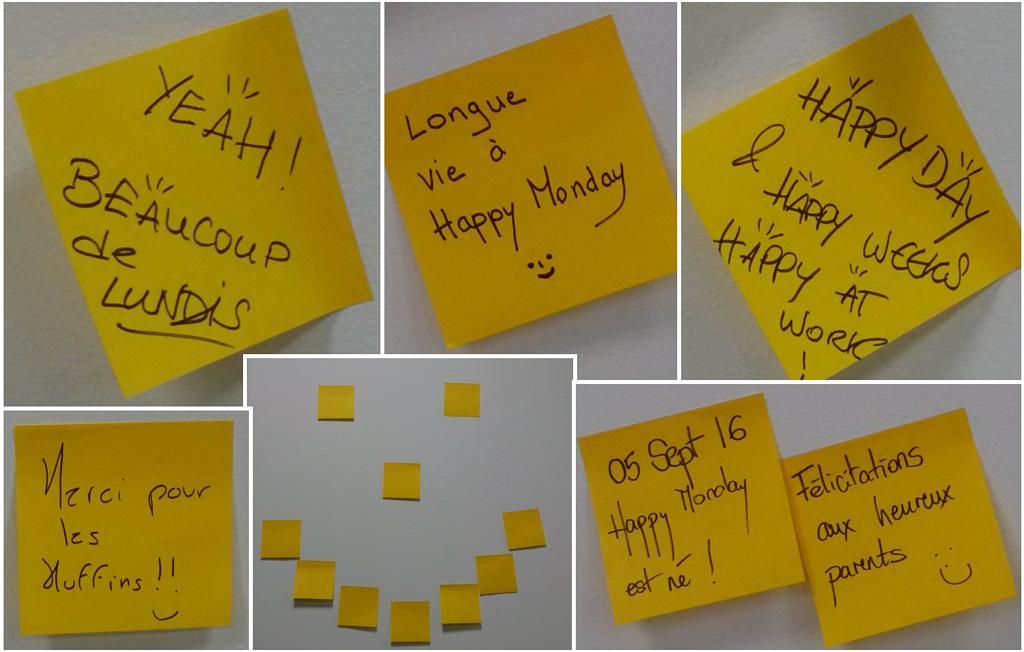 YEAH!
BEAUCOUP
de
LUNDIS
Longue
vie à
Happy Monday
HAPPY DAY
& HAPPY WEEKS
HAPPY AT
WORK
!
Merci pour
les
Muffins!!
05 Sept 16
Happy Monday
est né !
Félicitations
aux heureux
parents